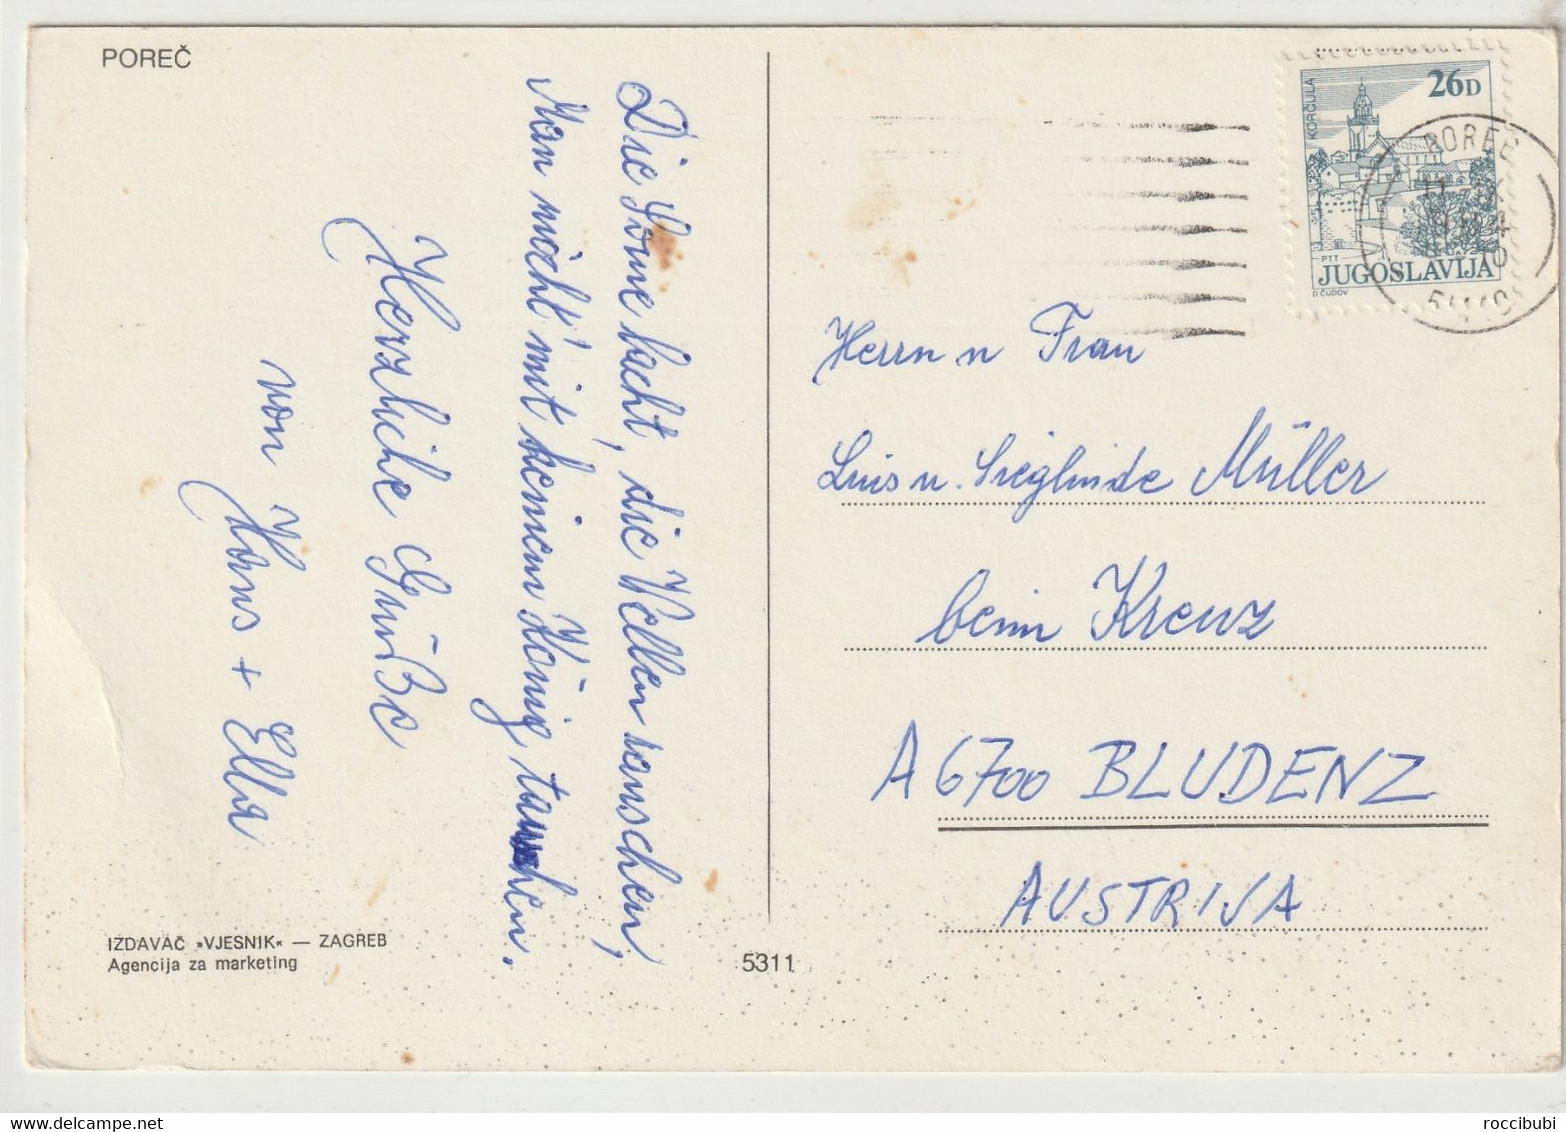 POREČ
Die Sonne lacht, die Wellen rauschen,
Man möcht' mit keinem König tauschen.
Herzliche Grüße
von Hans + Ella
IZDAVAČ »VJESNIK« — ZAGREB
Agencija za marketing
5311
KORČULA
26D
PTT
JUGOSLAVIJA
D. ČUDOV
POREČ
Herrn u Frau
Luis u. Sieglinde Müller
beim Kreuz
A 6700 BLUDENZ
AUSTRIJA
delcampe.net
roccibubi